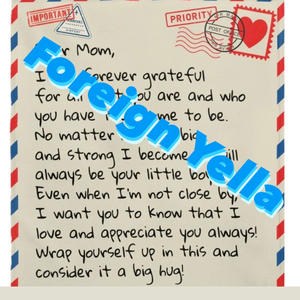 IMPORTANT
PRIORITY
Mom,
I forever grateful
for you are and who
you have to be.
No matter
and strong I become
always be your little
Even when I'm not close by,
I want you to know that I
love and appreciate you always!
Wrap yourself up in this and
consider it a big hug!
Foreign Yella